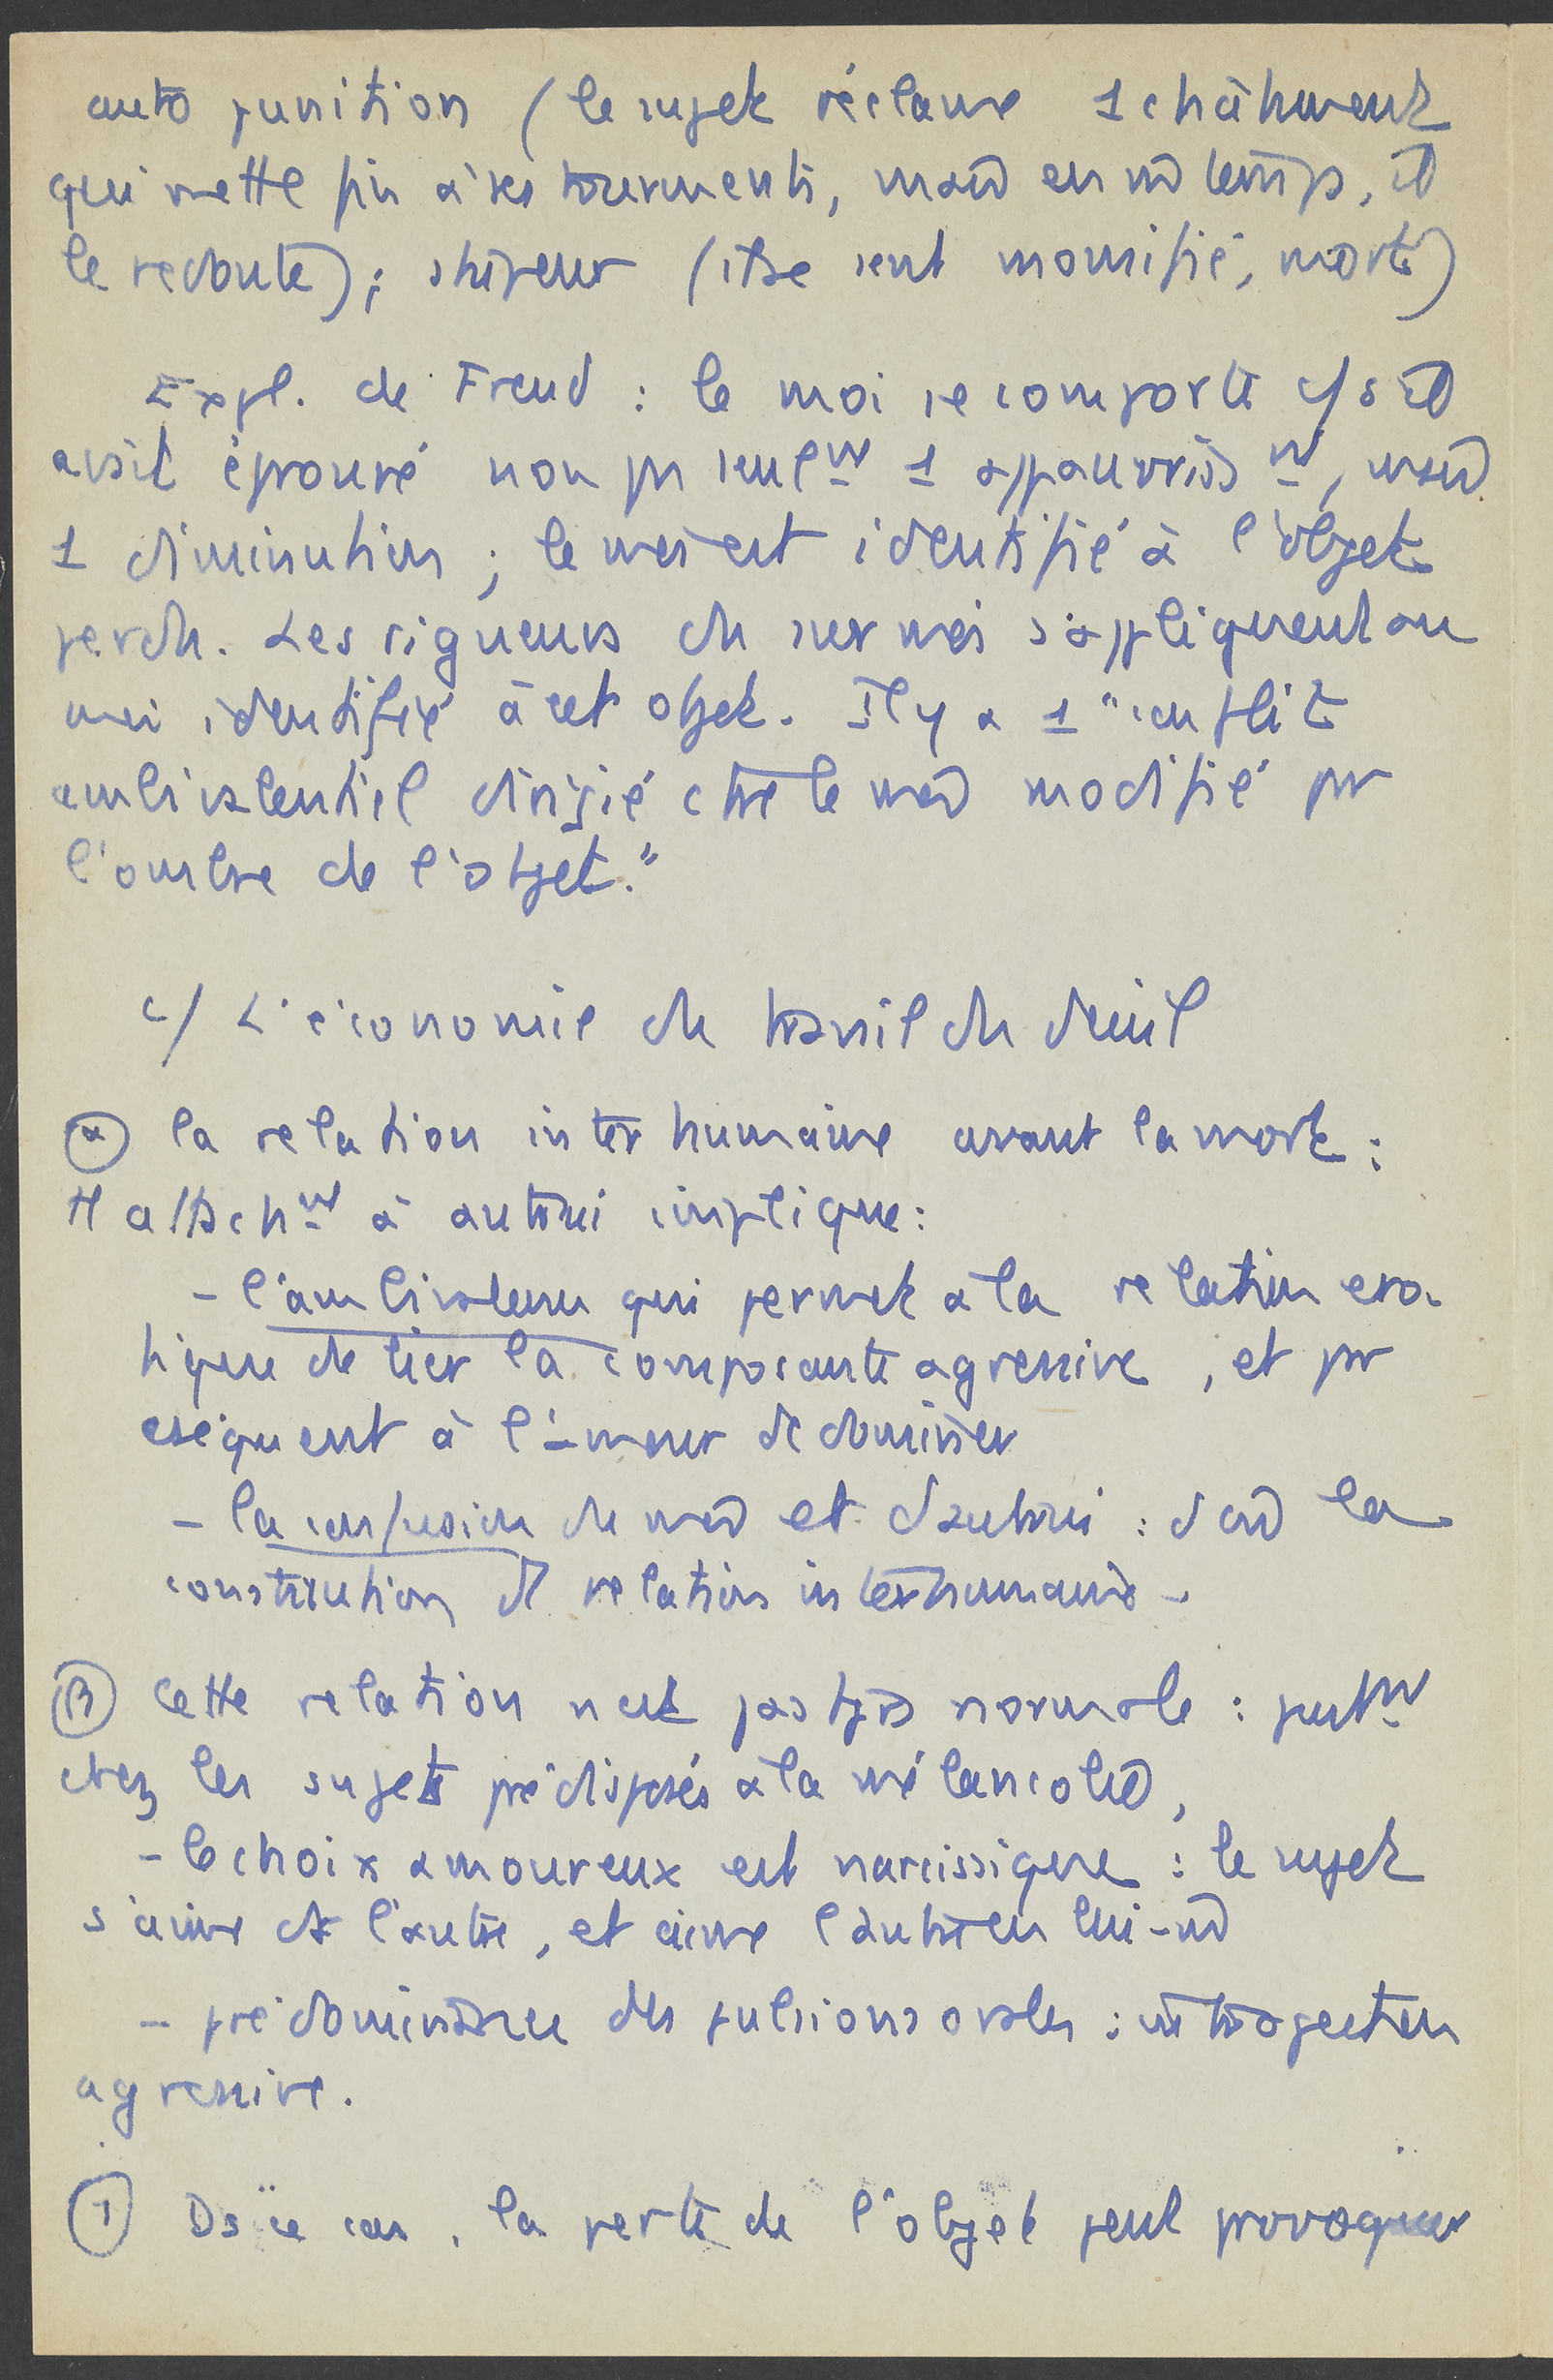 auto punition (le sujet réclame 1 châtiment
qui mette fin à ses tourments, mais en m̂ temps, il
le redoute) ; stupeur (il se sent momifié, mort)
Expl. de Freud : le moi se comporte c/ s'il
avait éprouvé non pas seulmt 1 appauvrissmt, mais
1 diminution ; le moi est identifié à l'objet
perdu. Les rigueurs du sur moi s'appliquent au
moi identifié à cet objet. Il y a 1 "conflit
ambivalentiel dirigé ctre le moi modifié pr
l'ombre de l'objet."
c/ L'économie du travail du deuil
α la relation inter humaine avant la mort :
tt attachmt à autrui implique :
- l'ambivalence qui permet à la relation éro-
tique de lier la composante agressive, et pr
cséquent à l'amour de dominer
- la confusion du moi et d'autrui : d'où la
constitution de relation interhumaine -
β Cette relation n'est pas tjrs normale :
chez les sujets prédisposés à la mélancolie,
- le choix amoureux est narcissique : le sujet
s'aime ds l'autre, et aime l'autre en lui-m̂
- prédominance des pulsions orales : introjection
agressive.
γ Ds ce cas, la perte de l'objet peut provoquer